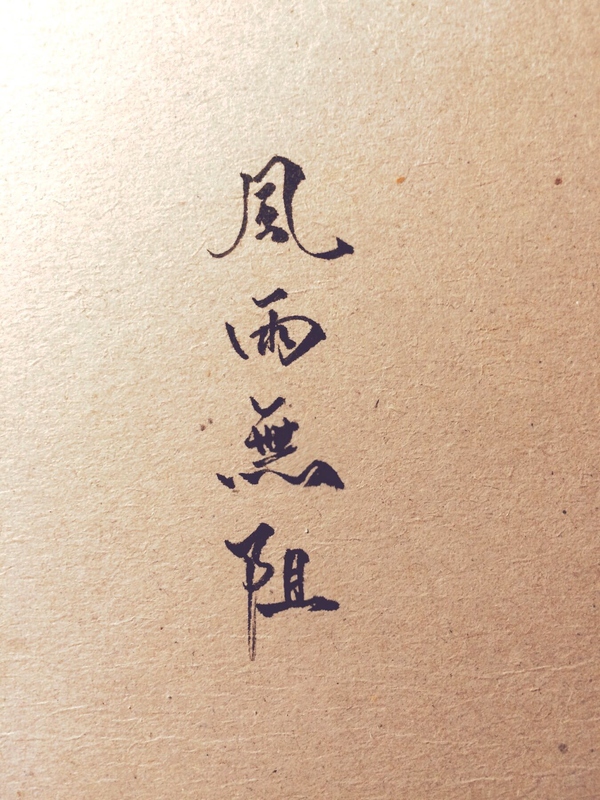 風雨無阻